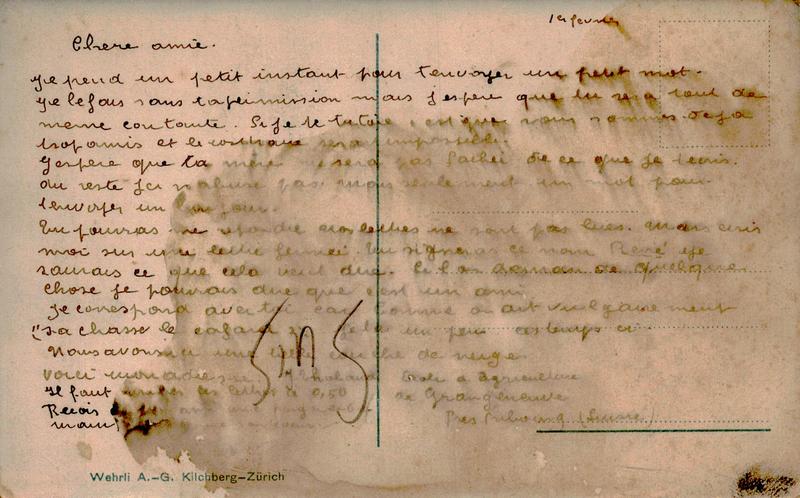 1er fevrier
Chere amie.
Je prend un petit instant pour t'envoyer un petit mot.
Je le fais sans ta permission mais j'espere que tu sera tout de
meme contante. Si je te tutoie c'est que nous sommes deja
trop amis et le contraire sera impossible.
J'espere que ta mere ne sera pas faché de ce que je t'ecris.
Du reste je n'abuse pas mais seulement un mot pour
t'envoyer un bonjour.
Tu pourras me repondre les lettres ne sont pas lues. Mais ecris
moi sur une lettre fermée. Tu signeras ce nom René je
saurais ce que cela veut dire. Et demande quelque
chose je pourrais dire que c'est un ami
Je correspond avec toi car comme on dit vulgairement
"sa chasse le cafard un peu ces temps ci
Nous avons ici une couche de neige
voici mon adresse Ecole d'agriculture
Il faut les lettres à 0,50 de Grangeneuve
Recois Pres Fribourg (Suisse)
SMS
Wehrli A.-G. Kilchberg-Zürich